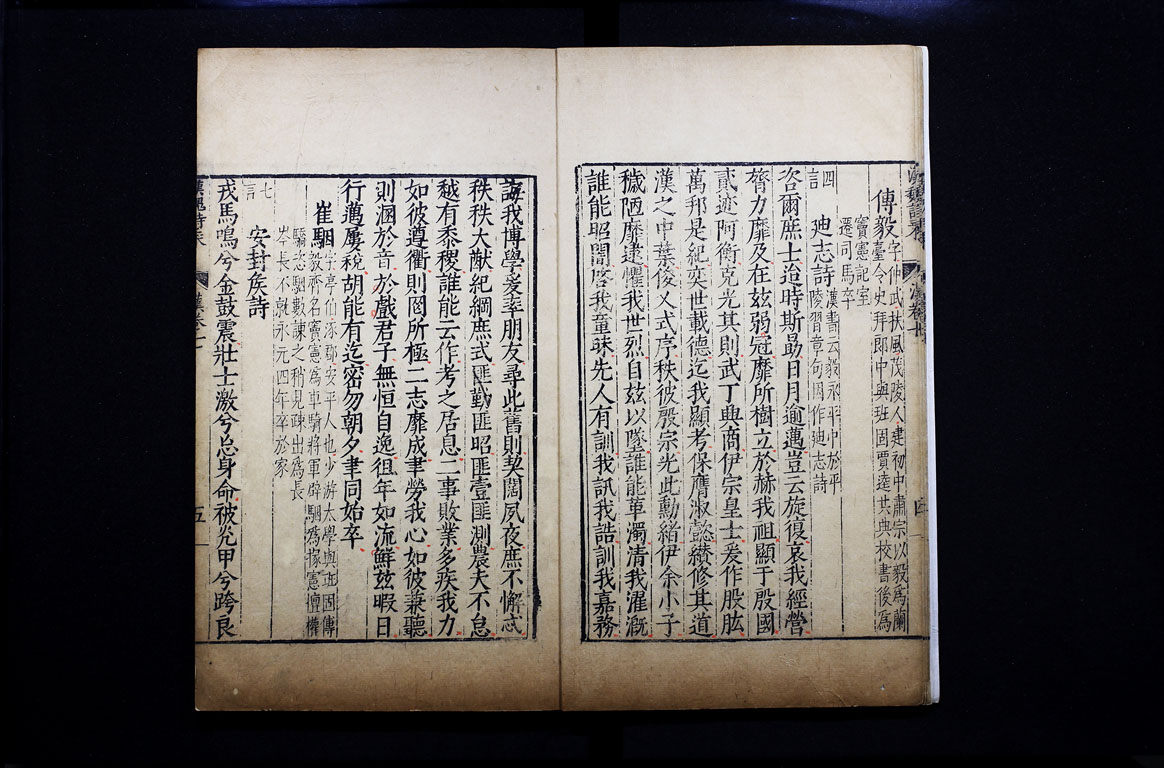 傅毅
字仲武扶風茂陵人建初中肅宗以毅為蘭
臺令史拜郎中與班固賈逵共典校書後為
竇憲記室
遷司馬卒
四言
迪志詩
漢書云毅永平中於平
陵習章句因作迪志詩
咨爾庶士迨時斯勗日月逾邁豈云旋復哀我經營
膂力靡及在玆弱冠靡所樹立於赫我祖顯于殷國
貳迹阿衡克光其則武丁典商伊宗皇士爰作股肱
萬邦是紀奕世載德迄我顯考保膺淑懿纘修其道
漢之中葉俊乂式序秩彼殷宗光此勳緒伊余小子
穢陋靡逮懼我世烈自玆以墜誰能革濁清我濯溉
誰能昭闇啓我童昧先人有訓我訊我誥訓我嘉務
誨我博學爰率朋友尋此舊則契闊夙夜庶不懈忒
秩秩大猷紀綱庶式匪勤匪昭匪壹匪測農夫不怠
越有黍稷誰能云作考之居息二事敗業多疾我力
如彼遵衢則罔所極二志靡成聿勞我心如彼兼聽
則溷於音於戲君子無恒自逸徂年如流鮮玆暇日
行邁屢稅胡能有迄密勿朝夕聿同始卒
崔駰
字亭伯涿郡安平人也少游太學與班固傅
毅齊名竇憲為車騎將軍辟駰為掾憲擅權
驕恣駰數諫之稍見疎出為長
岑長不就永元四年卒於家
七言
安封侯詩
戎馬鳴兮金鼓震壯士激兮忘身命被兕甲兮跨良
五